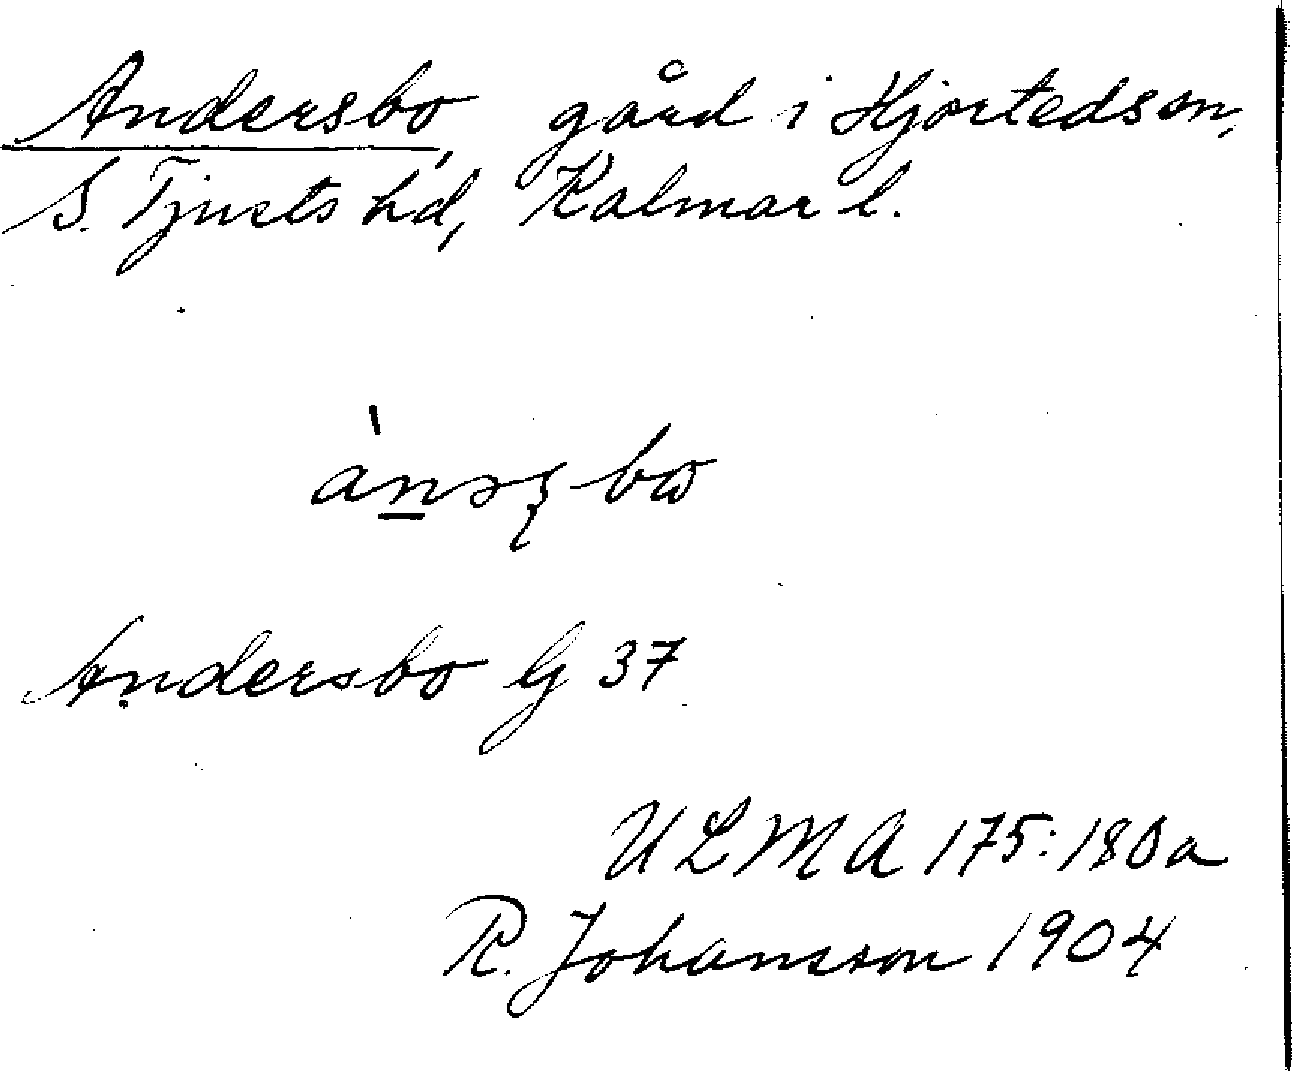 Andersbo, gård i Hjorteds sn,
S. Tjusts hd, Kalmar l.
Andersbo G 37
ULMA 175:180a
R. Johansson 1904